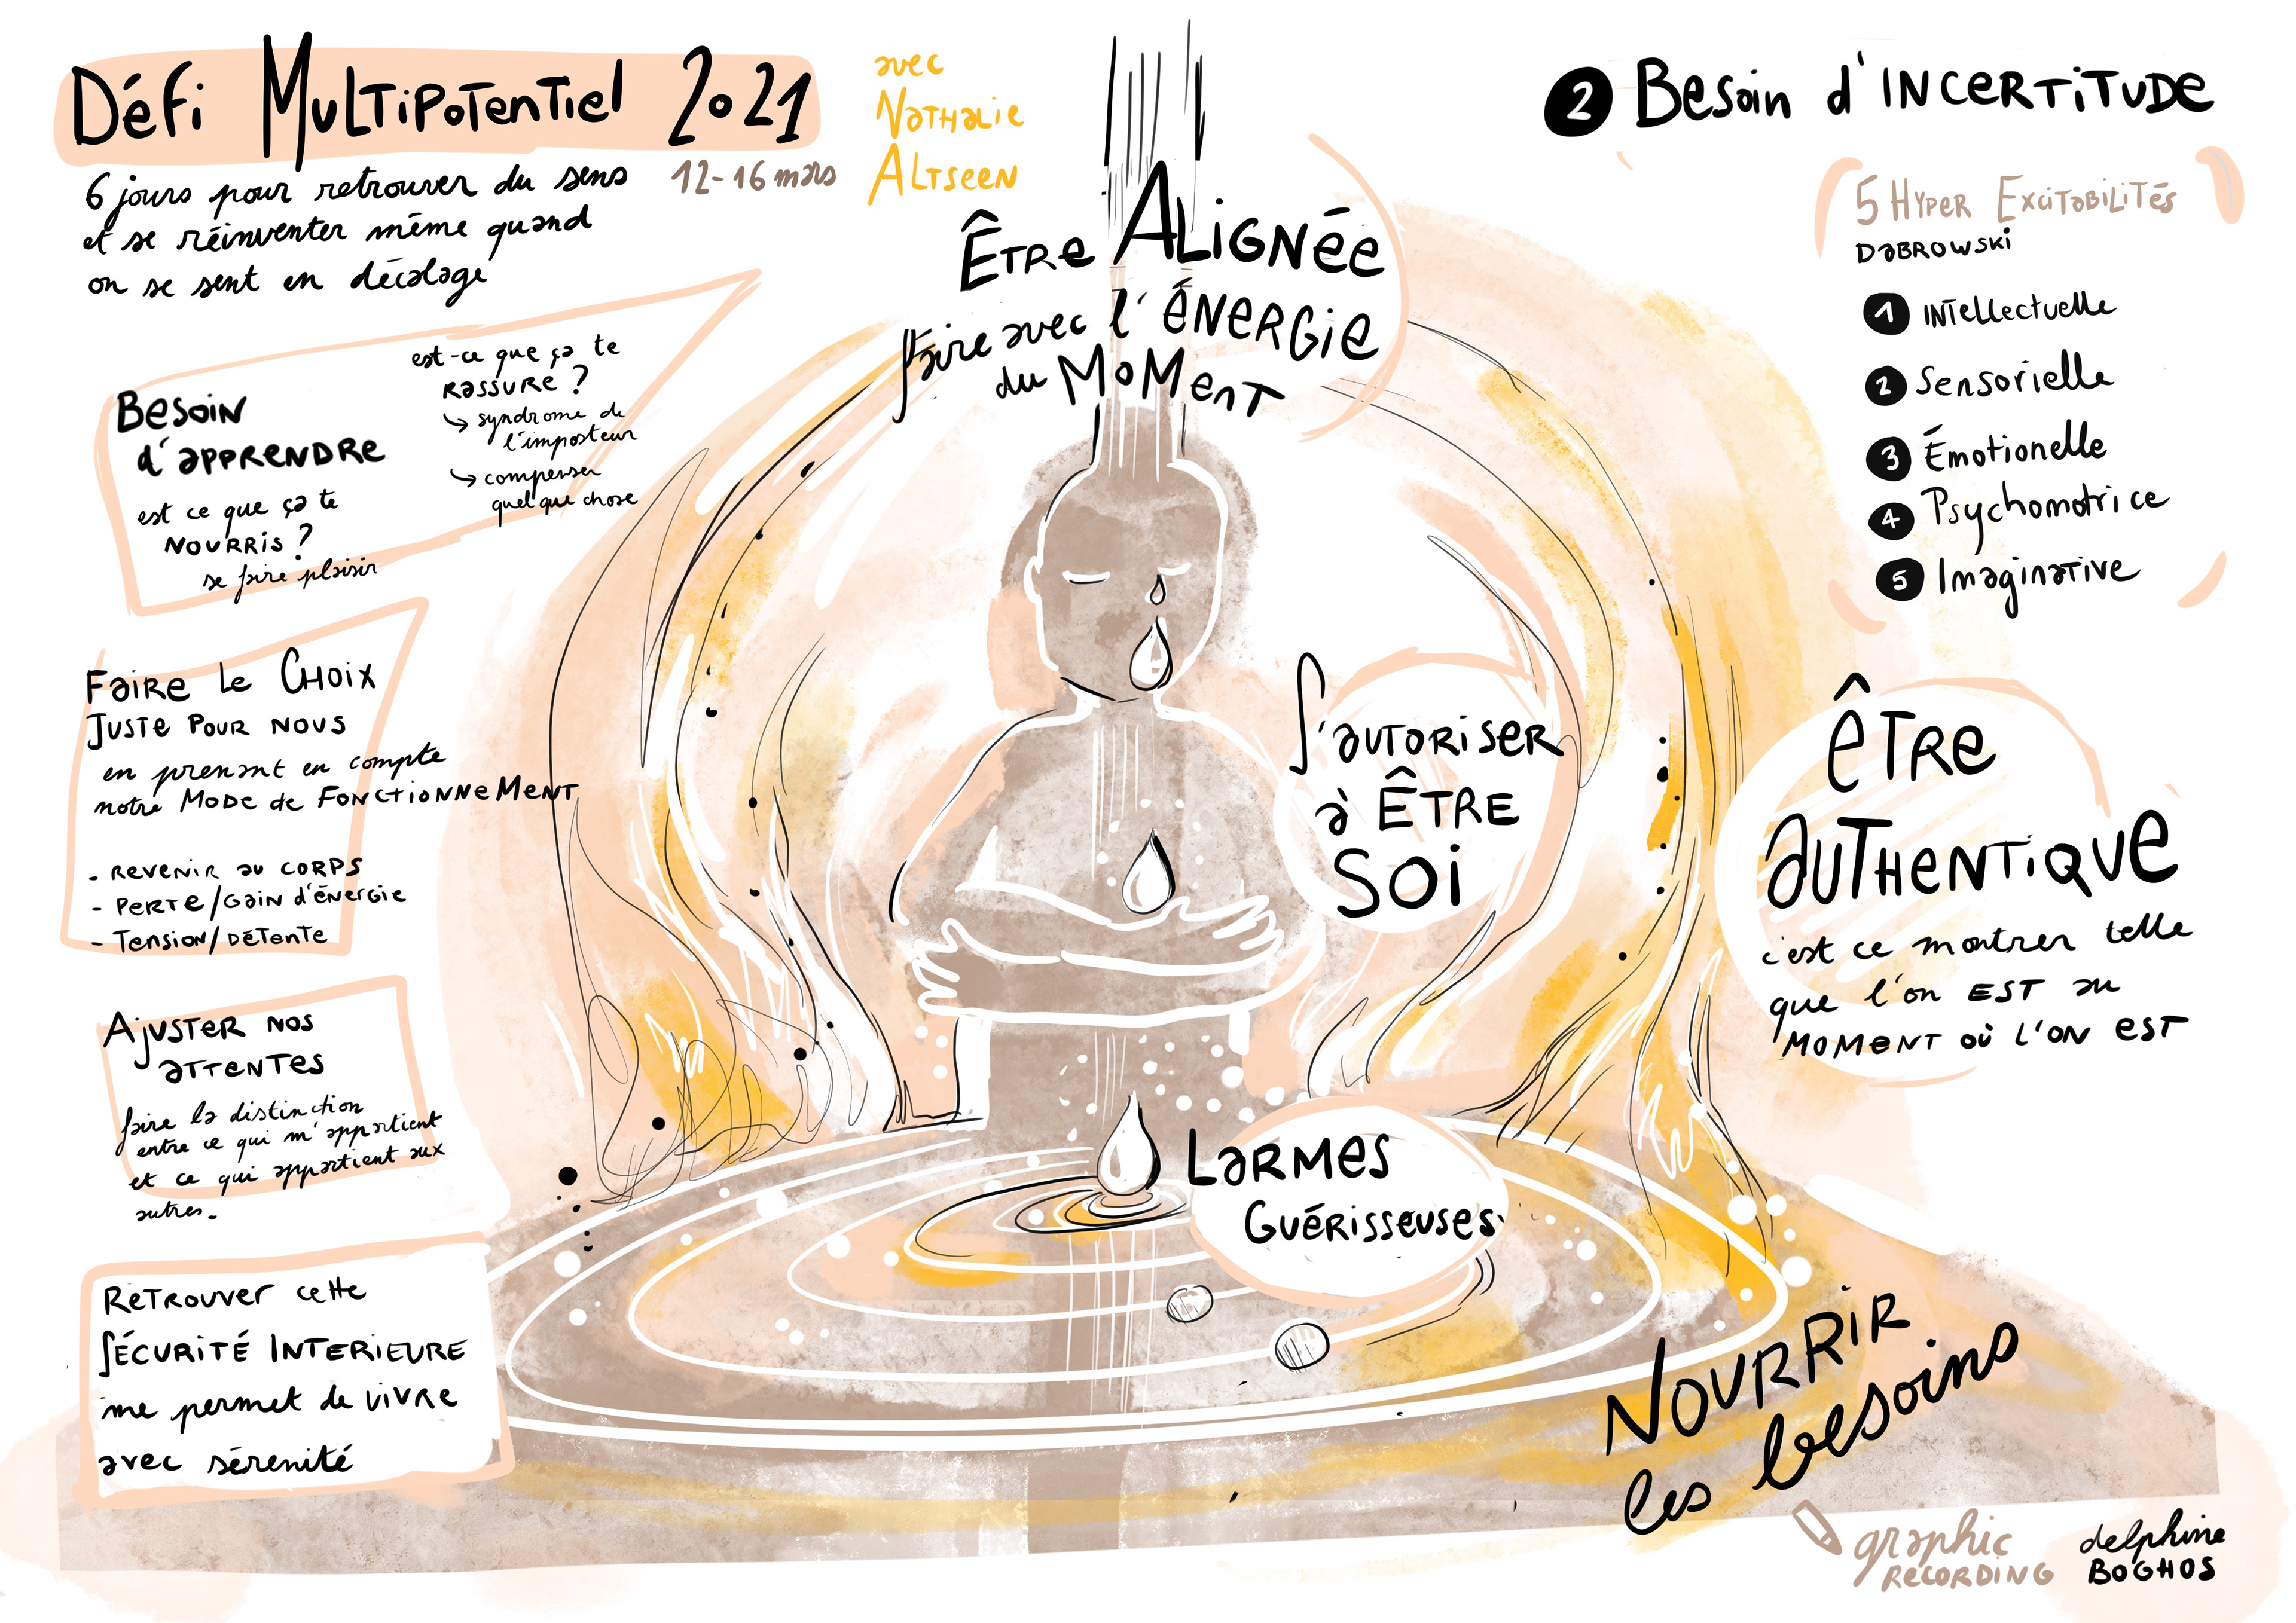 Défi Multipotentiel 2021
6 jours pour retrouver du sens
et se réinventer même quand
on se sent en décalage
12-16 mars
avec
Nathalie
Altseen
Être Alignée
faire avec l'énergie
du moment
2 Besoin d'incertitude
5 Hyper Excitabilités
Dabrowski
1 intellectuelle
2 Sensorielle
3 Émotionelle
4 Psychomotrice
5 Imaginative
Besoin
d'apprendre
est ce que ça te
nourris ?
se faire plaisir
est-ce que ça te
rassure ?
↳ syndrome de
l'imposteur
↳ compenser
quelque chose
Faire le choix
juste pour nous
en prenant en compte
notre mode de fonctionnement
- revenir au corps
- perte/gain d'énergie
- tension/détente
Ajuster nos
attentes
faire la distinction
entre ce qui m'appartient
et ce qui appartient aux
autres.
Retrouver cette
sécurité interieure
me permet de vivre
avec sérénité
S'autoriser
à être
soi
Être
authentique
c'est ce montrer telle
que l'on est au
moment où l'on est
Larmes
guérisseuses
Nourrir
les besoins
graphic
recording
delphine
Boghos